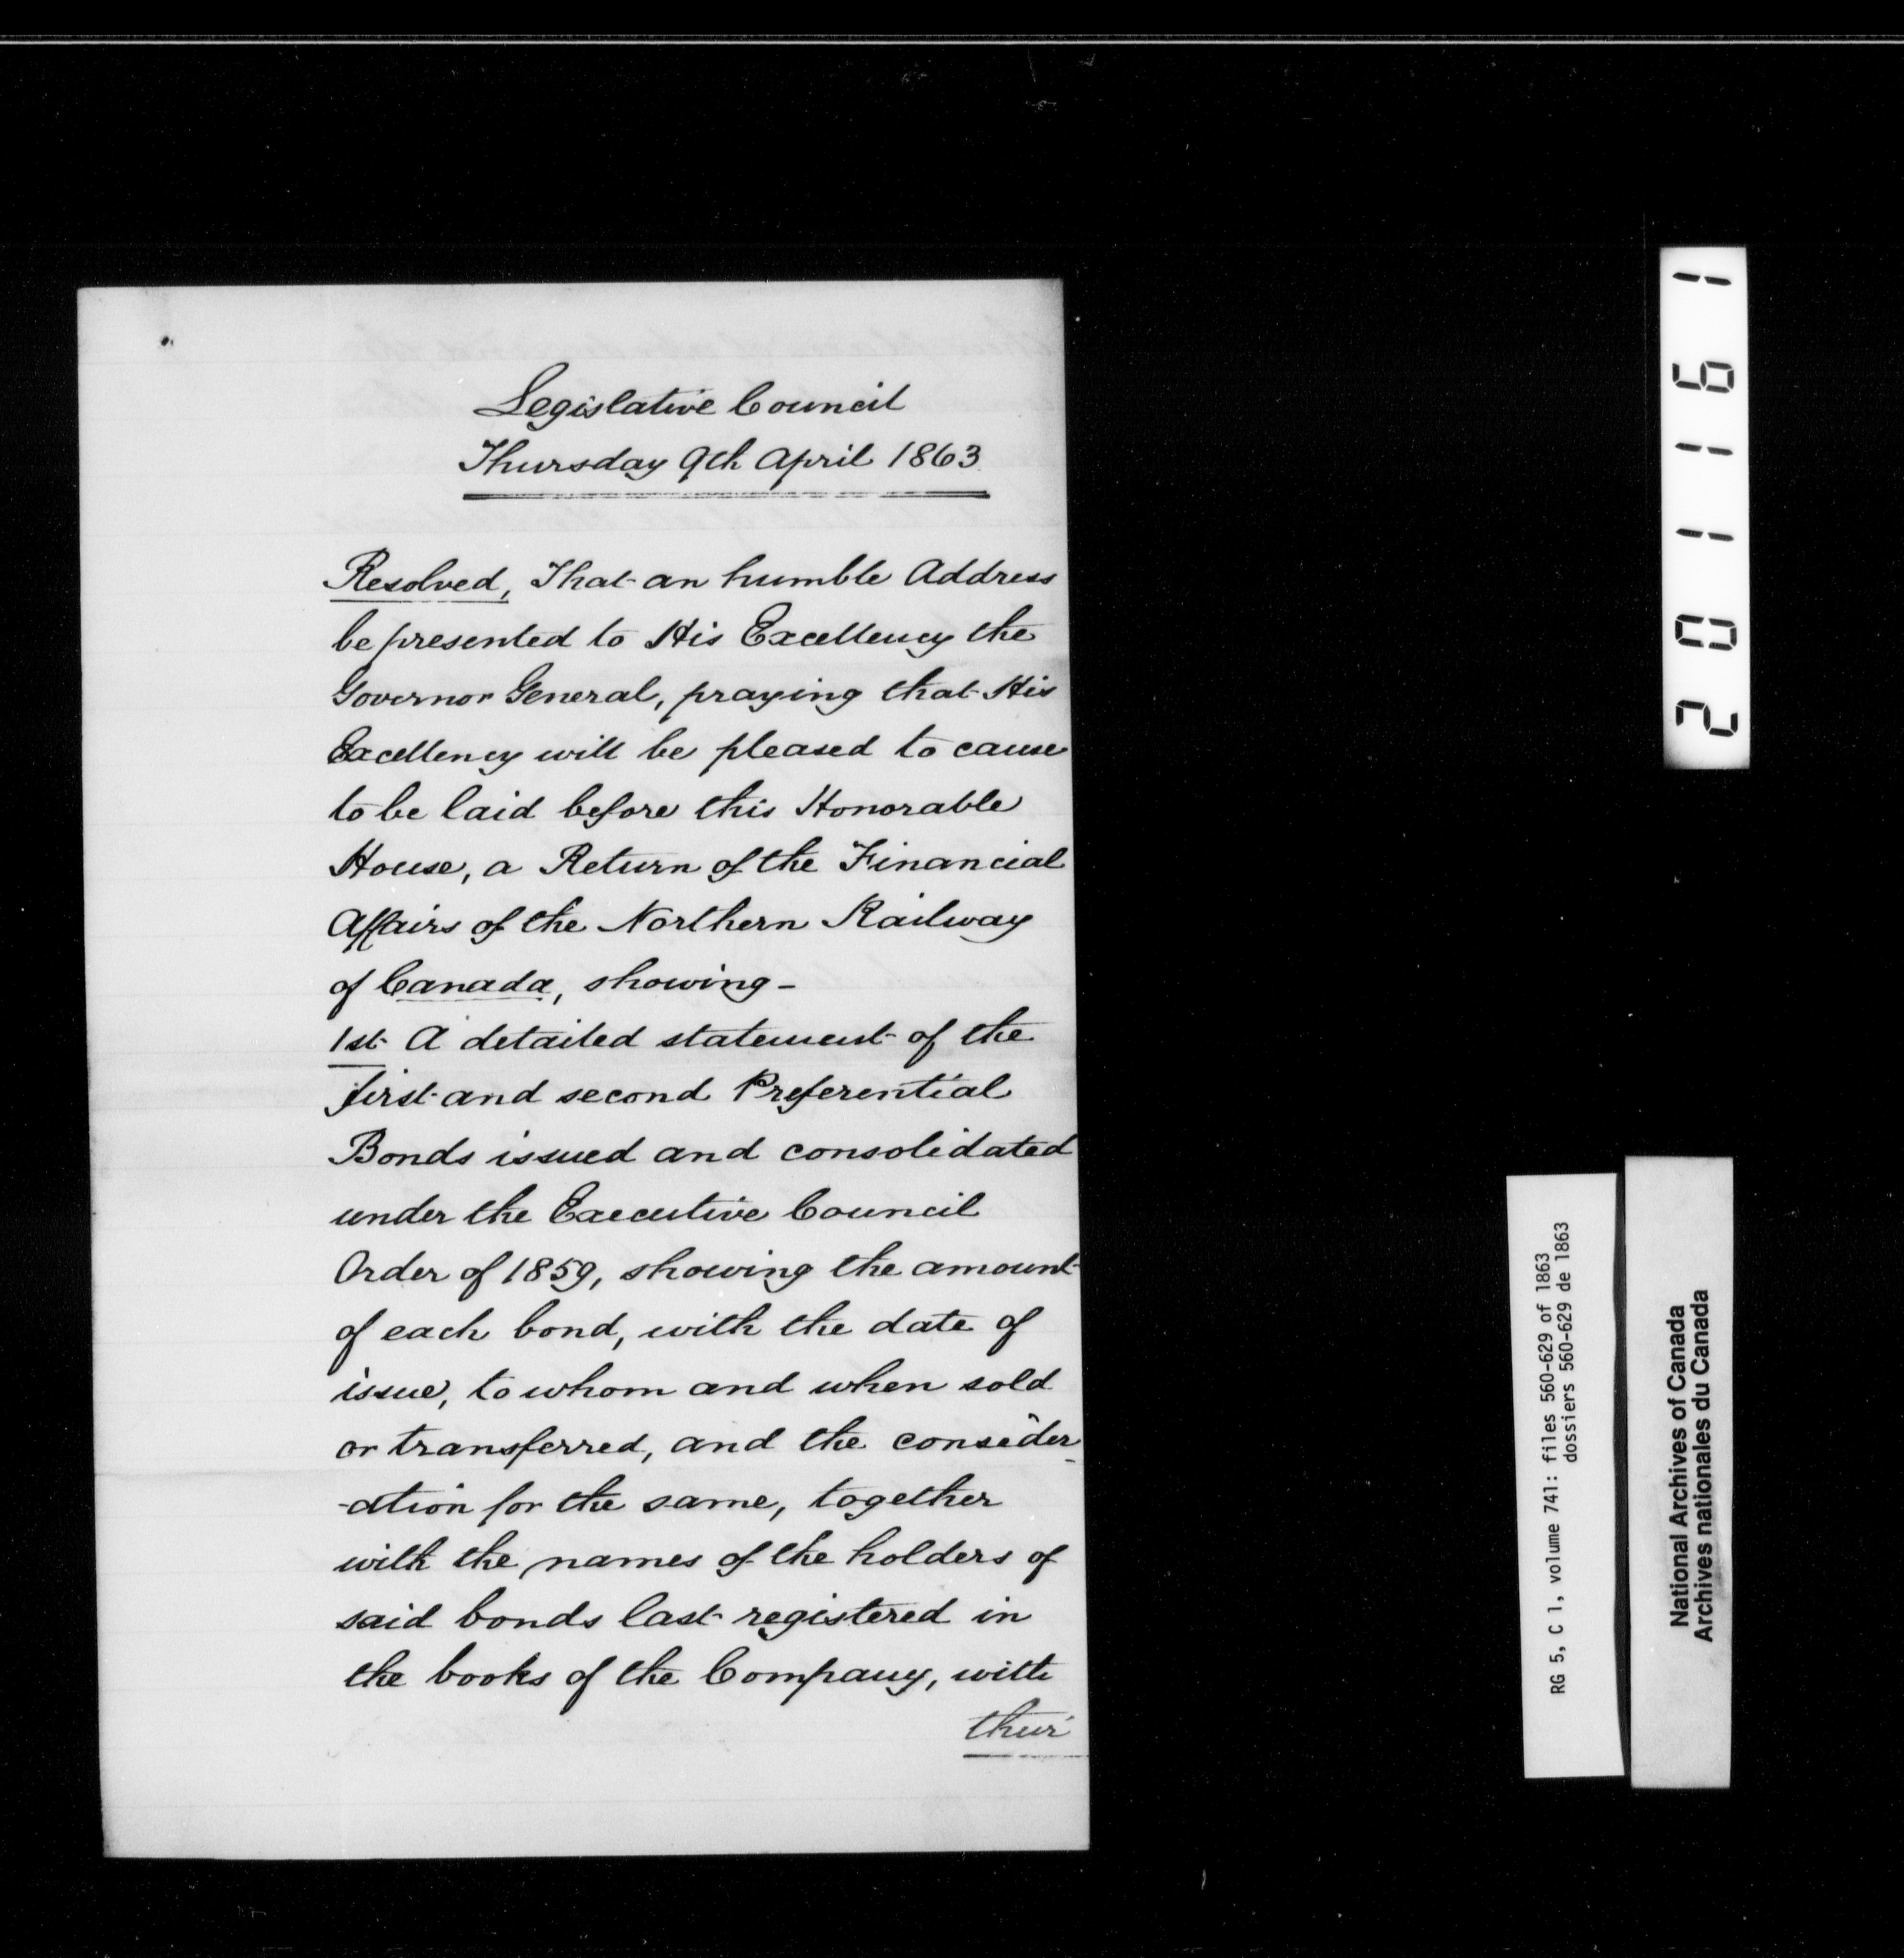 Legislative Council
Thursday 9th April 1863
Resolved, That an humble Address
be presented to His Excellency the
Governor General, praying that His
Excellency will be pleased to cause
to be laid before this Honorable
House, a Return of the Financial
Affairs of the Northern Railway
of Canada, showing -
1st A detailed statement of the
first and second Preferential
Bonds issued and consolidated
under the Executive Council
Order of 1859, showing the amount
of each bond, with the date of
issue, to whom and when sold
or transferred, and the consider-
-ation for the same, together
with the names of the holders of
said bonds last registered in
the books of the Company, with
their
201161
RG 5, C 1, volume 741: files 560-629 of 1863
dossiers 560-629 de 1863
National Archives of Canada
Archives nationales du Canada